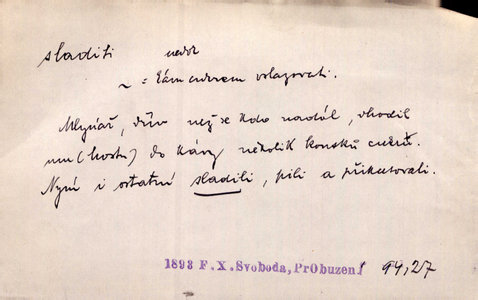 sladiti nedok
~ = tám cukrem oslazovati.
Mlynář, dřív než se kdo nadál, vhodil
mu (hostu) do kávy několik kousků cukru.
Nyní i ostatní sladili, pili a přikusovali.
1893 F.X.Svoboda, PrObuzení 94,27